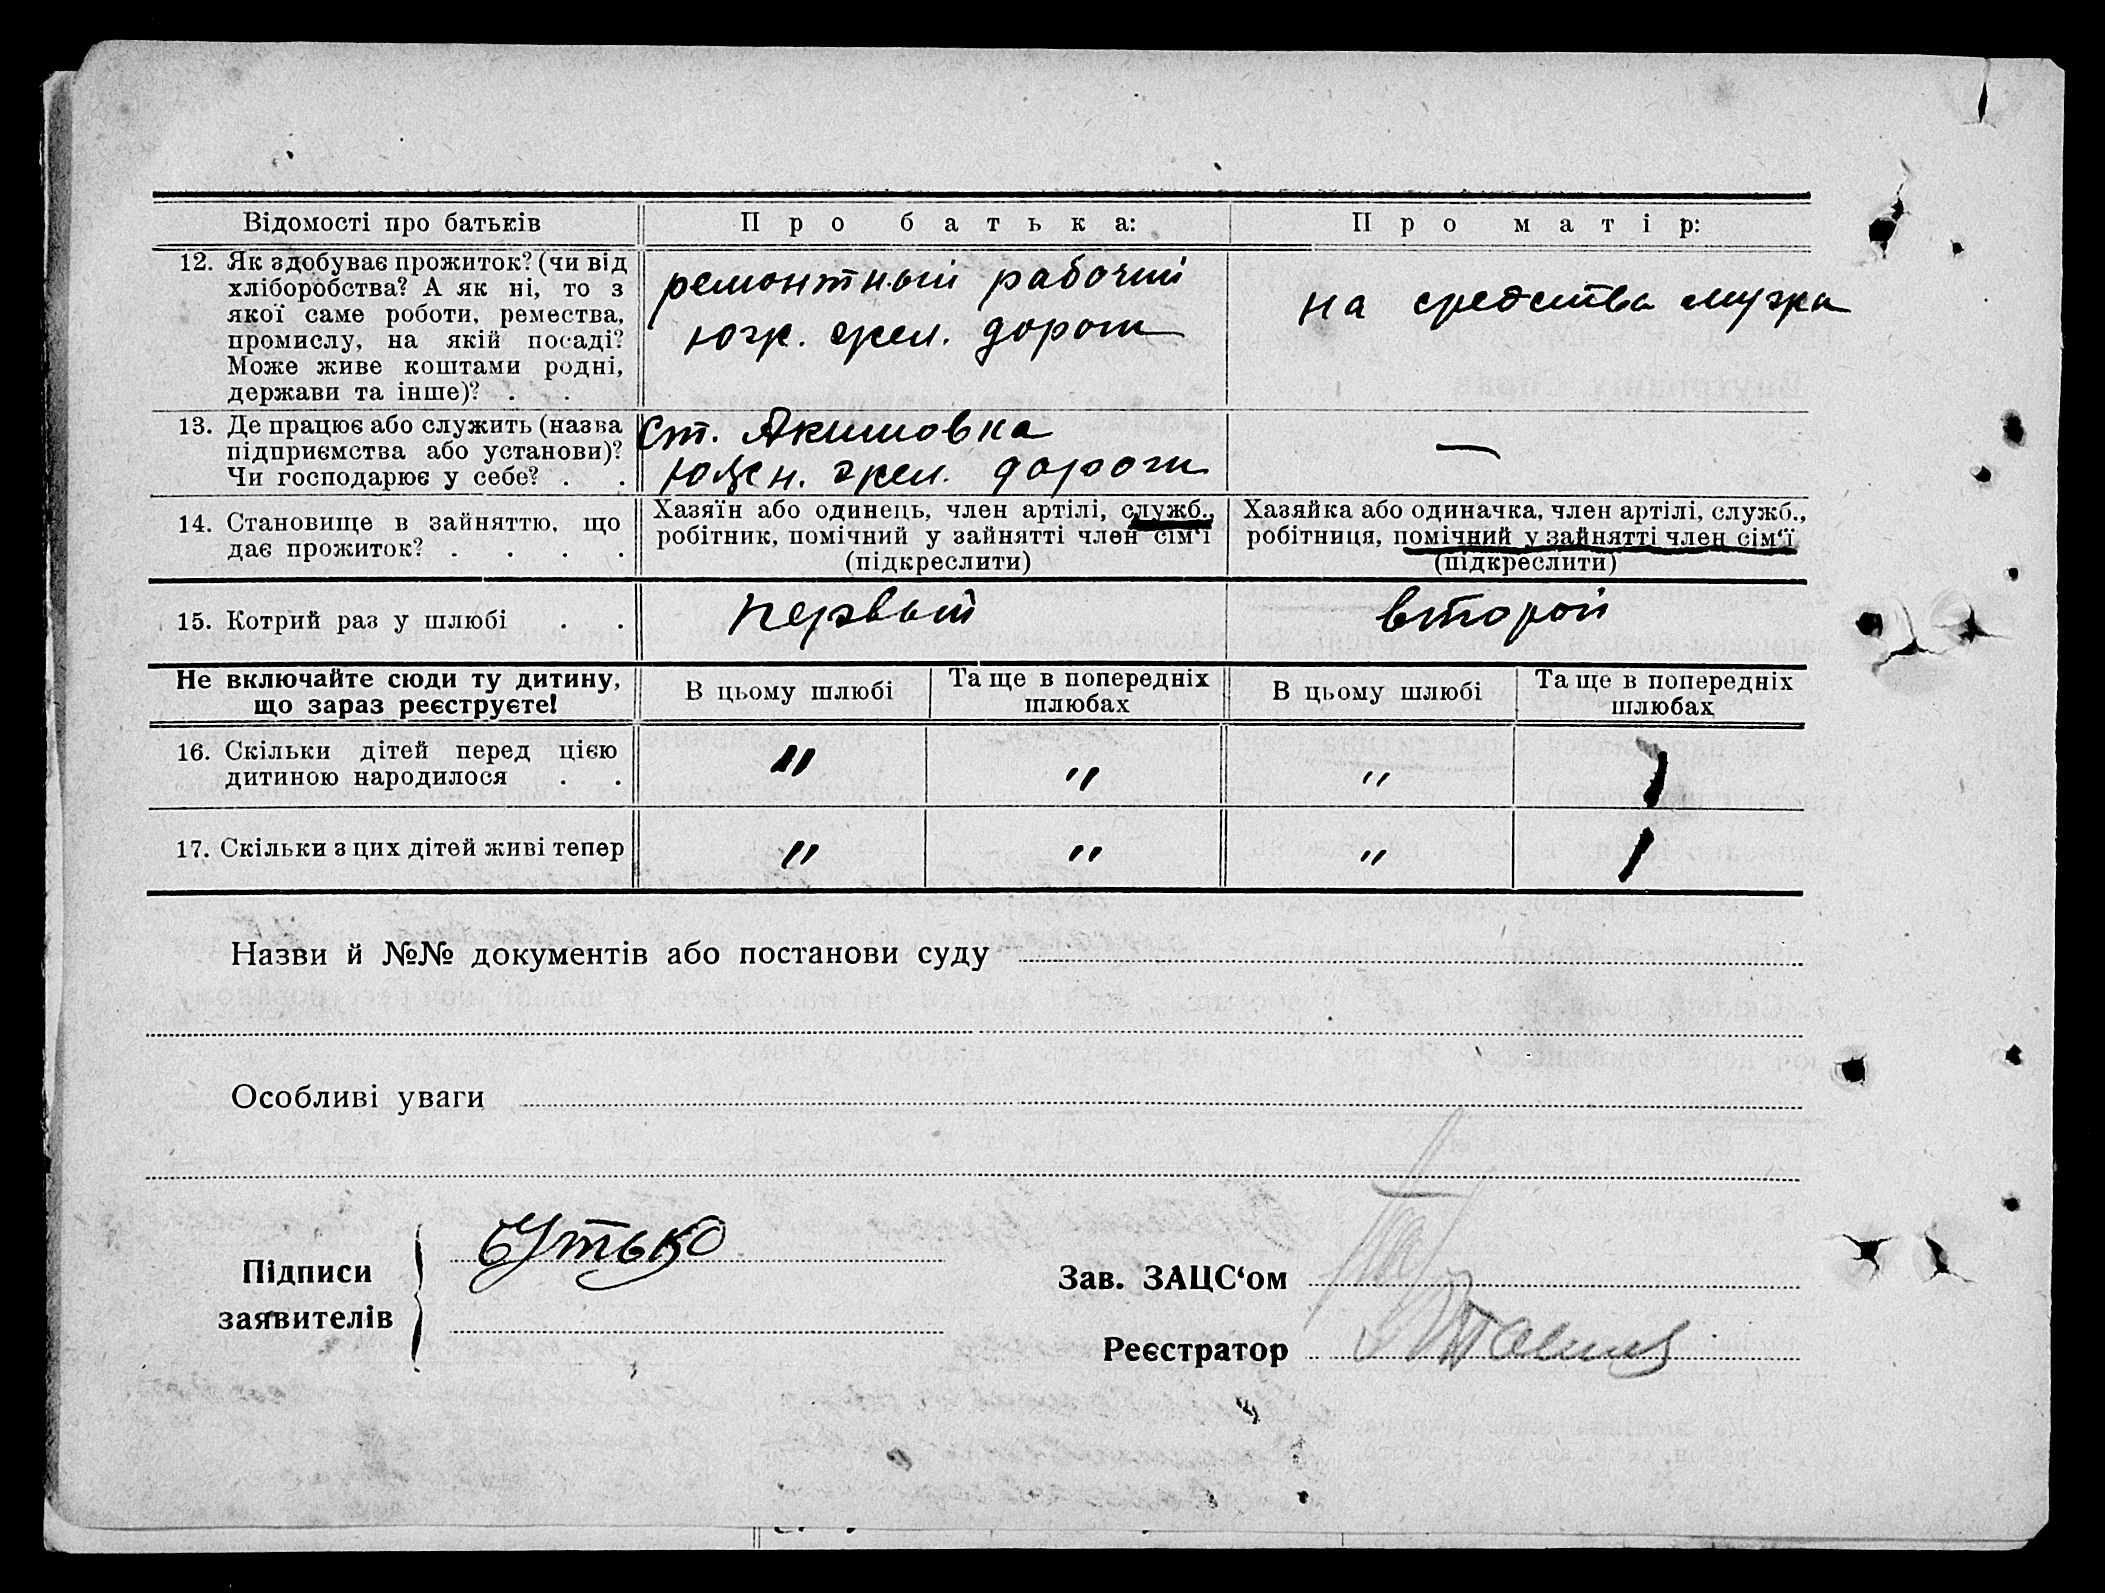 Відомості про батьків
Про батька:
Про матір:
12. Як здобуває прожиток? (чи від
хліборобства? А як ні, то з
якої саме роботи, ремества,
промислу, на якій посаді?
Може живе коштами родні,
держави та інше)? . .
ремонтный рабочий
Юж. жел. дороги
на средства мужа
13. Де працює або служить (назва
підприємства або установи)?
Чи господарює у себе? . .
Ст. Акимовка
Южн. жел. дороги
—
14. Становище в зайняттю, що
дає прожиток? . . . .
Хазяїн або одинець, член артілі, служб.,
робітник, помічний у зайнятті член сім'ї
(підкреслити)
Хазяйка або одиначка, член артілі, служб.,
робітниця, помічний у зайнятті член сім'ї
(підкреслити)
15. Котрий раз у шлюбі . .
первый
второй
Не включайте сюди ту дитину,
що зараз реєструєте!
В цьому шлюбі
Та ще в попередніх
шлюбах
В цьому шлюбі
Та ще в попередніх
шлюбах
16. Скільки дітей перед цією
дитиною народилося . .
"
"
"
1
17. Скільки з цих дітей живі тепер
"
"
"
1
Назви й №№ документів або постанови суду
Особливі уваги
Підписи
заявителів
Утько
Зав. ЗАЦС'ом
Реєстратор